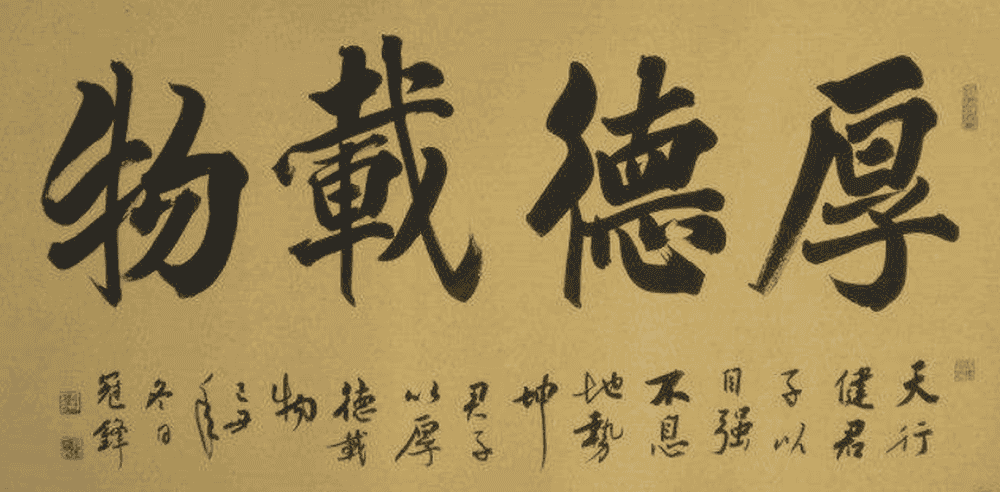 厚德載物
天行
健君
子以
自强
不息
地勢
坤
君子
以厚
德載
物
己丑
年
冬日
冠鋒